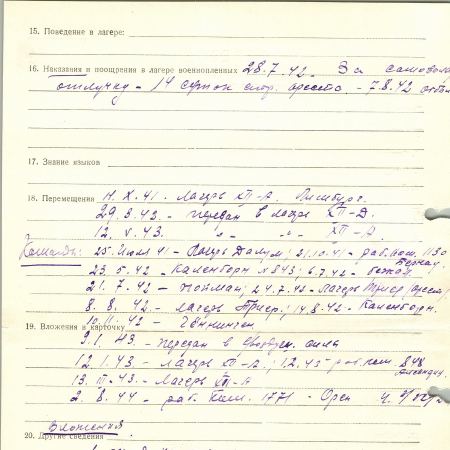 15. Поведение в лагере:
16. Наказания и поощрения в лагере военнопленных 28.7.42 - За самоволь
отлучку - 14 суток стр. ареста - 7.8.42 отбыл
17. Знание языков
18. Перемещения 11.X.41. лагерь XII-A. Лимбург.
29.3.43. - передан в лагерь XII-D.
12.V.43. - " - " - XII-A.
Команды: 25. Июля 41 - Лагерь Далум; 21.10.41 - раб. ком. 1130
23.5.42 - Каленборн №843; 6.7.42 - бежал.
21.7.42 - пойман; 24.7.42 - лагерь Трир
8.8.42. - лагерь Трир; 14.8.42 - Каленборн.
11.42 - Геннинген.
19. Вложения в карточку 9.1.43. - передан в
12.1.43. - Лагерь XII-A.; 1.2.43 раб. ком. 848
13.III.43. - Лагерь XII-A
2.8.44 - раб. ком. 1771 - Орен
Вложения
20. Другие сведения